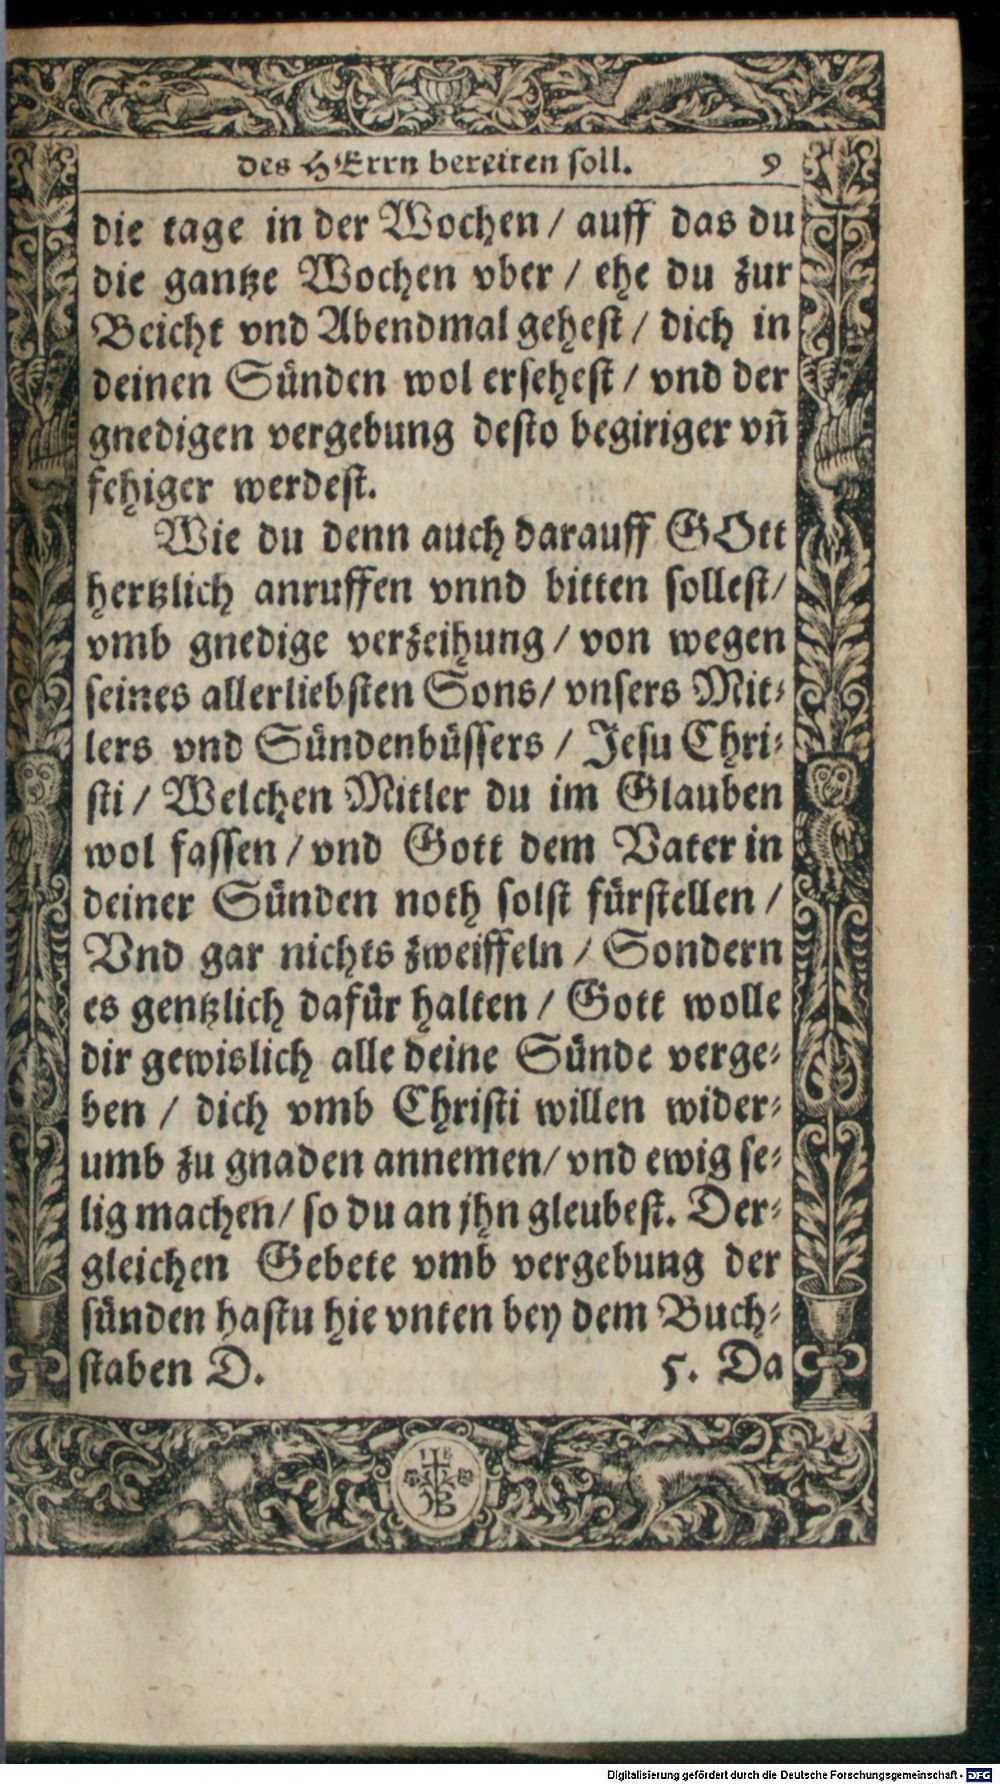 des HErrn bereiten soll. 9
die tage in der Wochen / auff das du
die gantze Wochen vber / ehe du zur
Beicht vnd Abendmal gehest / dich in
deinen Sünden wol ersehest / vnd der
gnedigen vergebung desto begiriger vñ
fehiger werdest.
Wie du denn auch darauff GOtt
hertzlich anruffen vnnd bitten sollest/
vmb gnedige verzeihung / von wegen
seines allerliebsten Sons/ vnsers Mit-
lers vnd Sündenbüssers / Jesu Chri-
sti / Welchen Mitler du im Glauben
wol fassen / vnd Gott dem Vater in
deiner Sünden noth solst fürstellen /
Vnd gar nichts zweiffeln / Sondern
es gentzlich dafür halten / Gott wolle
dir gewislich alle deine Sünde verge-
ben / dich vmb Christi willen wider-
umb zu gnaden annemen/ vnd ewig se-
lig machen/ so du an jhn gleubest. Der-
gleichen Gebete vmb vergebung der
sünden hastu hie vnten bey dem Buch-
staben D. 5. Da
Digitalisierung gefördert durch die Deutsche Forschungsgemeinschaft - DFG